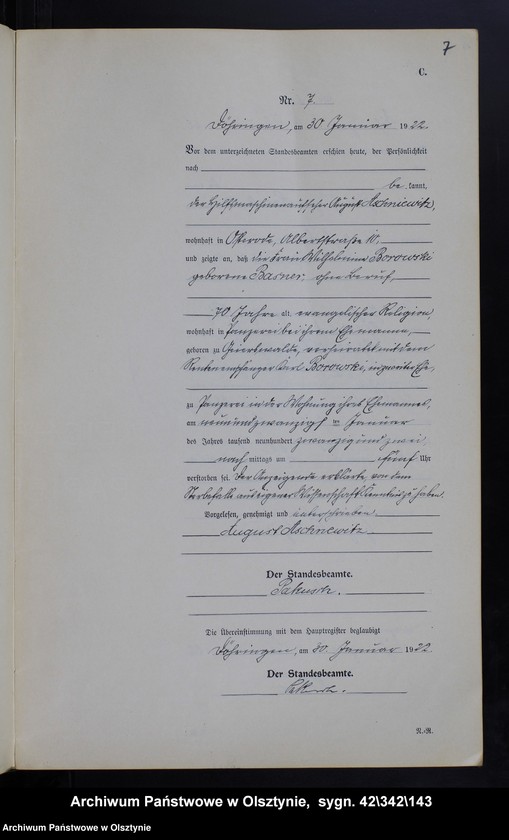 7
C.
Nr. 7.
Döhringen, am 30 Januar 1922.
Vor dem unterzeichneten Standesbeamten erschien heute, der Persönlichkeit
nach
be kannt,
der Hilfsmaschinenaufseher August Aschniewitz,
wohnhaft in Osterode, Albertstraße 10,
und zeigte an, daß die Frau Wilhelmine Borowski
geborene Basner, ohne Beruf,
70 Jahre alt, evangelischer Religion
wohnhaft in Panzerei bei ihrem Ehemanne,
geboren zu Geierswalde, verheiratet mit dem
Rentenempfänger Karl Borowski, in zweiter Ehe,
zu Panzerei in der Wohnung ihres Ehemannes,
am neunundzwanzigsten Januar
des Jahres tausend neunhundert zwanzig und zwei
nach mittags um fünf Uhr
verstorben sei. Der Anzeigende erklärte, von dem
Sterbefalle aus eigener Wissenschaft Kenntnis zu haben.
Vorgelesen, genehmigt und unterschrieben.
August Aschniewitz
Der Standesbeamte.
Die Übereinstimmung mit dem Hauptregister beglaubigt
Döhringen, am 30. Januar 1922.
Der Standesbeamte.
N.-R.
Archiwum Państwowe w Olsztynie, sygn. 42\342\143
Archiwum Państwowe w Olsztynie